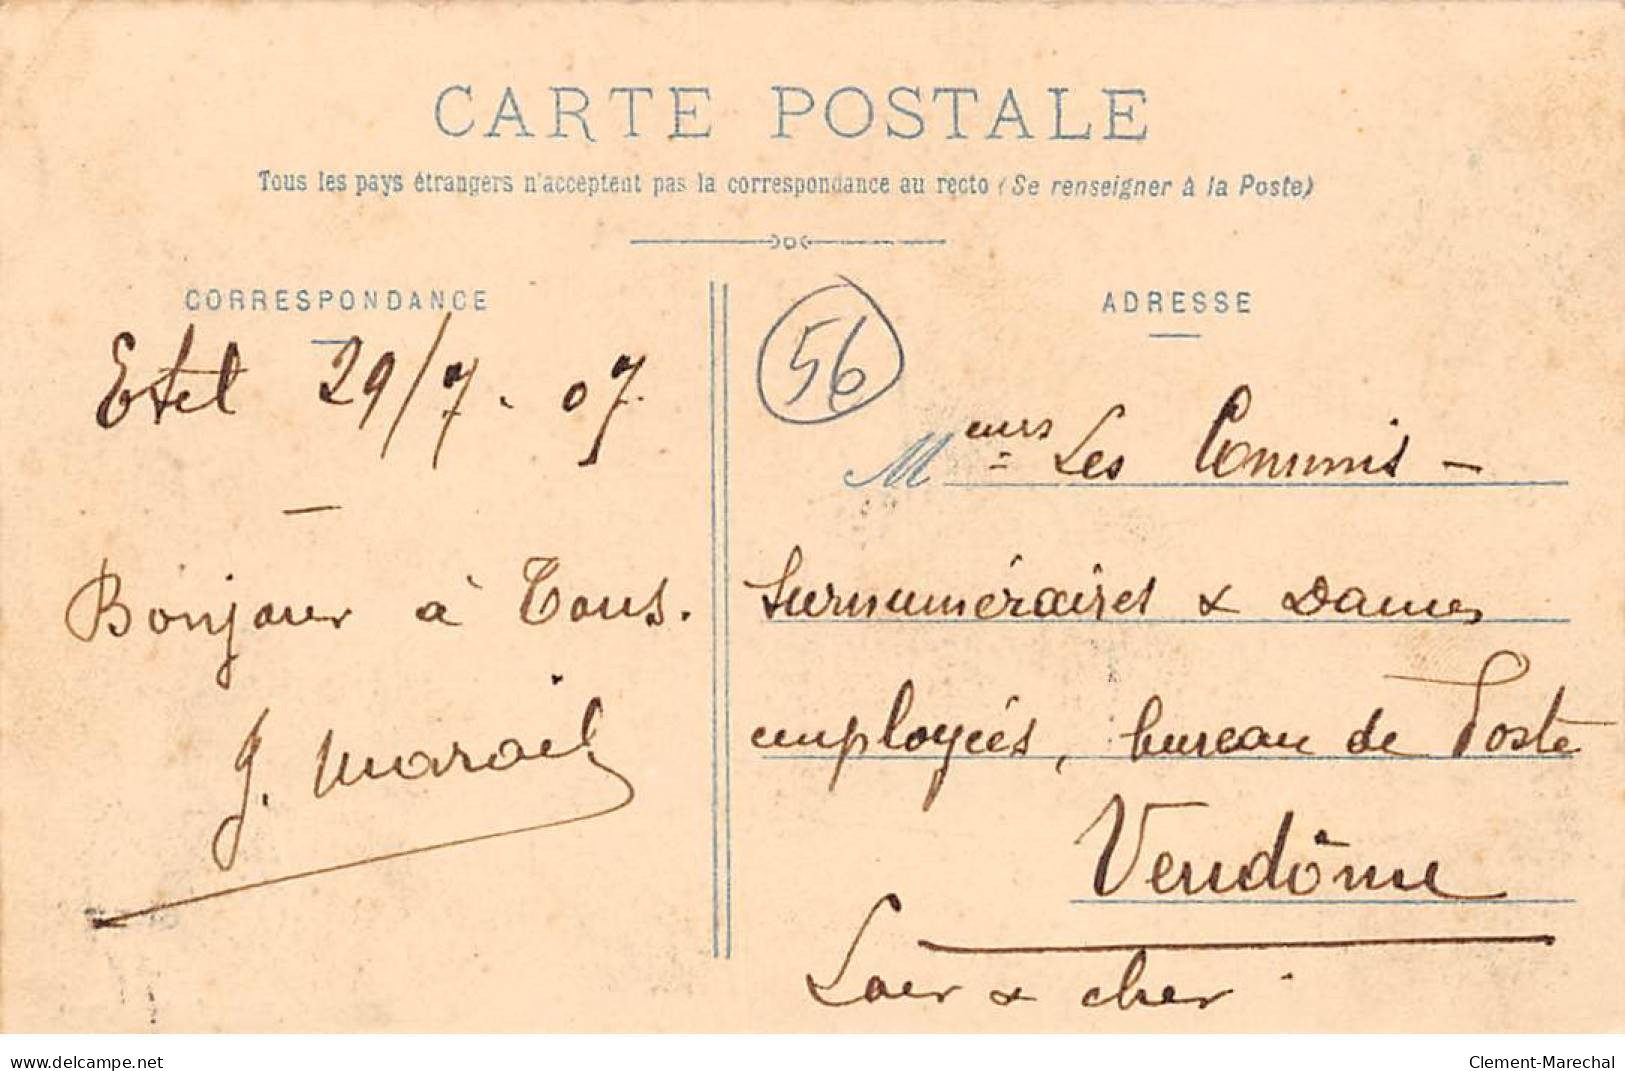 CARTE POSTALE
Tous les pays étrangers n'acceptent pas la correspondance au recto (Se renseigner à la Poste)
CORRESPONDANCE
Etel 29/7. 07
Bonjour à Tous.
J.
ADRESSE
56
Meurs Les Commis -
Surnuméraires & Dames
employées, bureau de Poste
Vendôme
Loir & cher
www.delcampe.net
Clement-Marechal